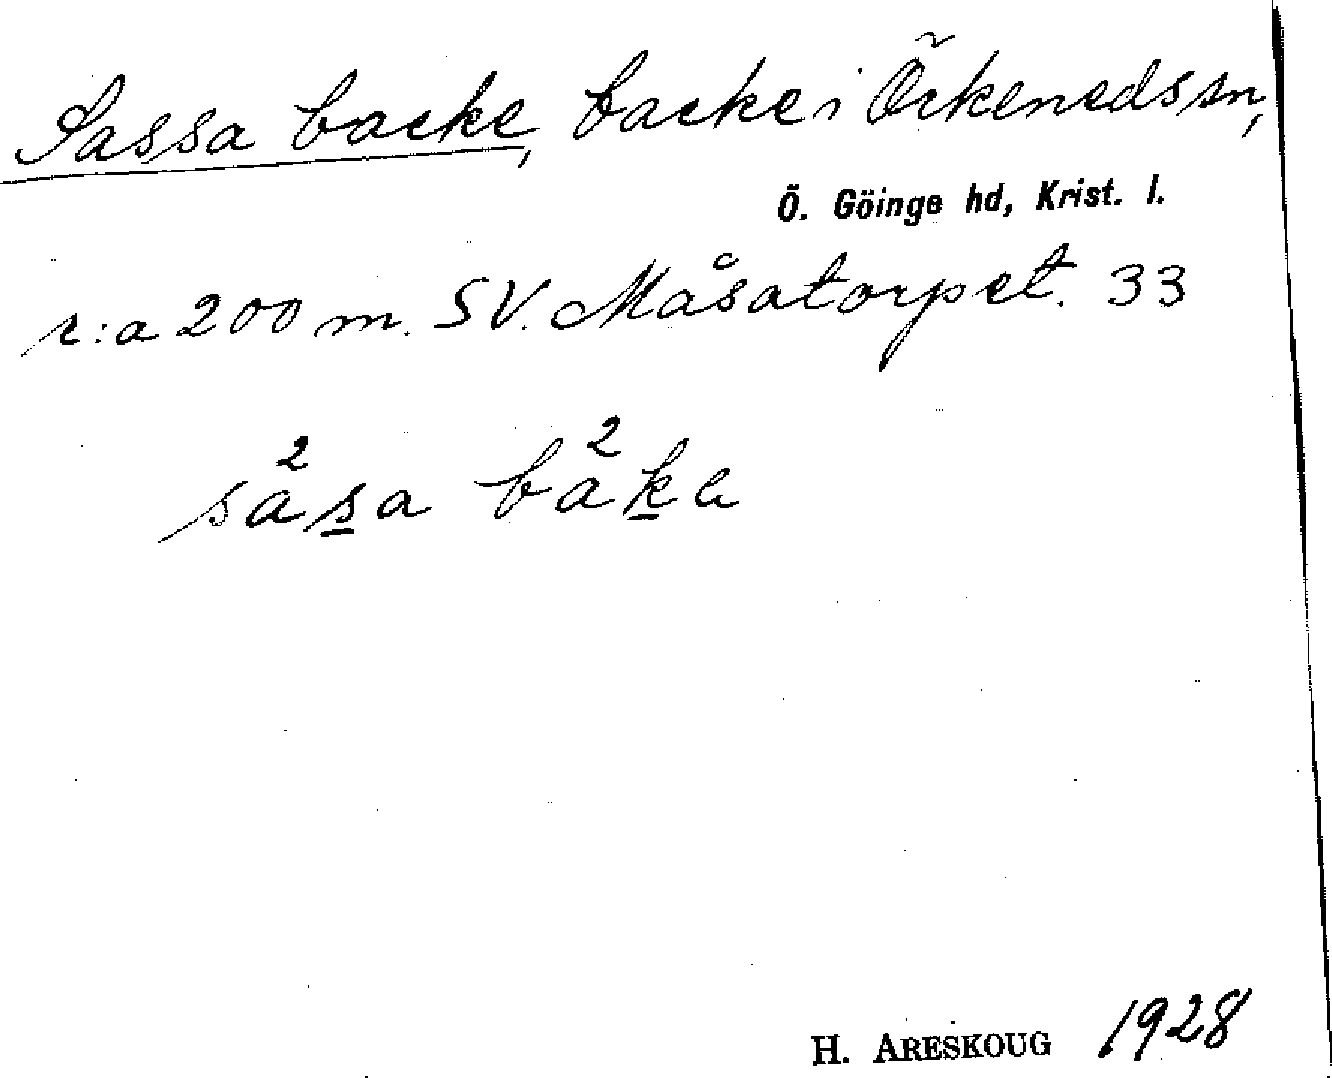 Sassa backe, backe i Örkeneds sn,
Ö. Göinge hd, Krist. l.
c:a 200 m. SV. Måsatorpet. 33
sa²s̲a ba²k̲a
H. ARESKOUG 1928